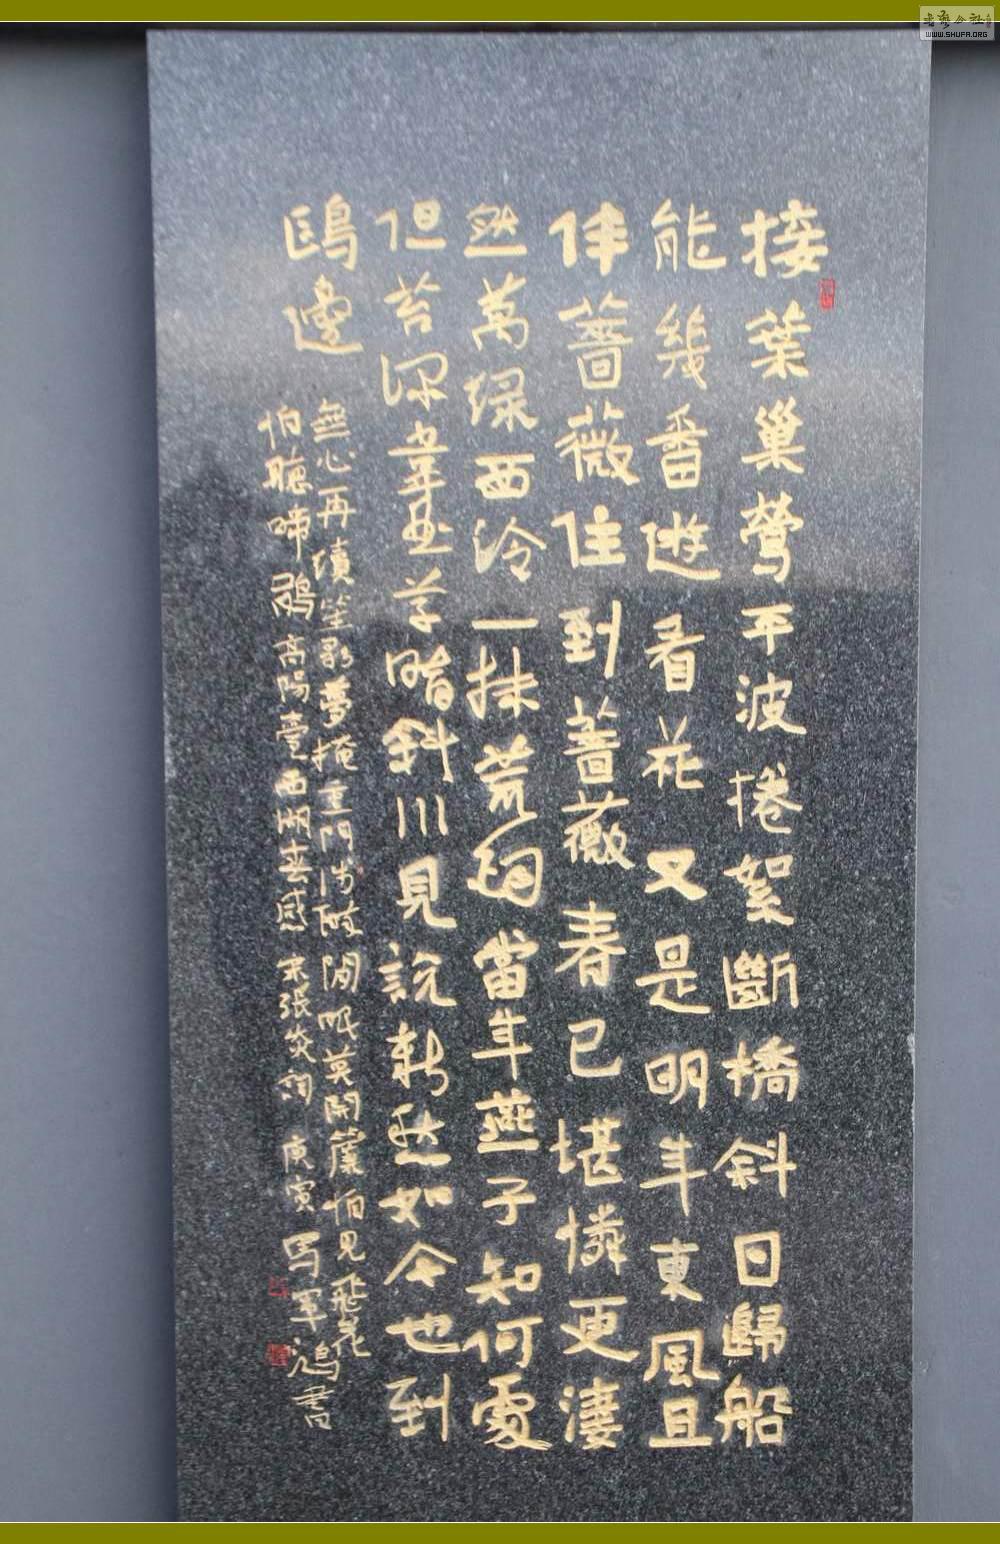 接葉巢鶯平波捲絮斷橋斜日歸船
能幾番遊看花又是明年東風且
伴薔薇住到薔薇春已堪憐更淒
然萬綠西泠一抹荒煙當年燕子知何處
但苔深韋曲草暗斜川見說新愁如今也到
鷗邊
無心再續笙歌夢掩重門淺醉閒眠莫開簾怕見飛花
怕聽啼鵑高陽臺西湖春感宋張炎詞庚寅馬軍鴻書
書藝公社
WWW.SHUFA.ORG